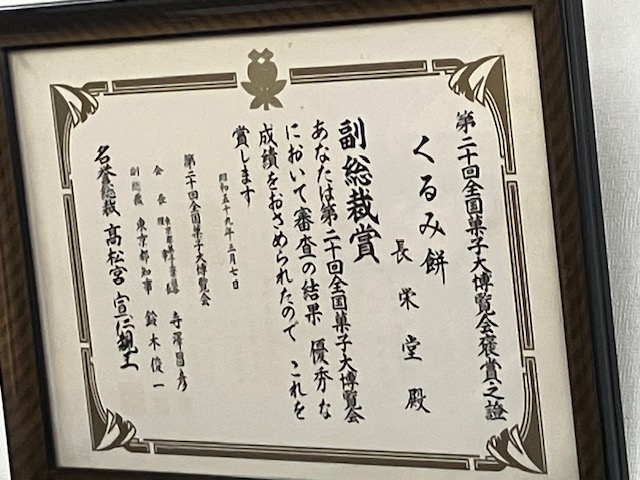 第二十回全国菓子大博覧会褒賞之證
くるみ餅
長栄堂殿
副総裁賞
あなたは第二十回全国菓子大博覧会
において審査の結果優秀な
成績をおさめられたので これを
賞します
昭和五十九年三月七日
第二十回全国菓子大博覧会
会長 寺澤昌彦
副総裁 東京都知事 鈴木俊一
名誉総裁 高松宮宣仁親王